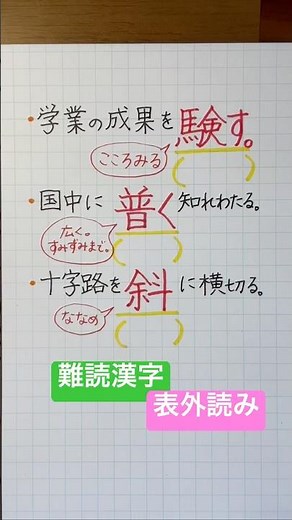 ・学業の成果を験す。
こころみる
( )
・国中に普く知れわたる。
広く。
すみずみまで。
( )
・十字路を斜に横切る。
ななめ
( )
難読漢字
表外読み